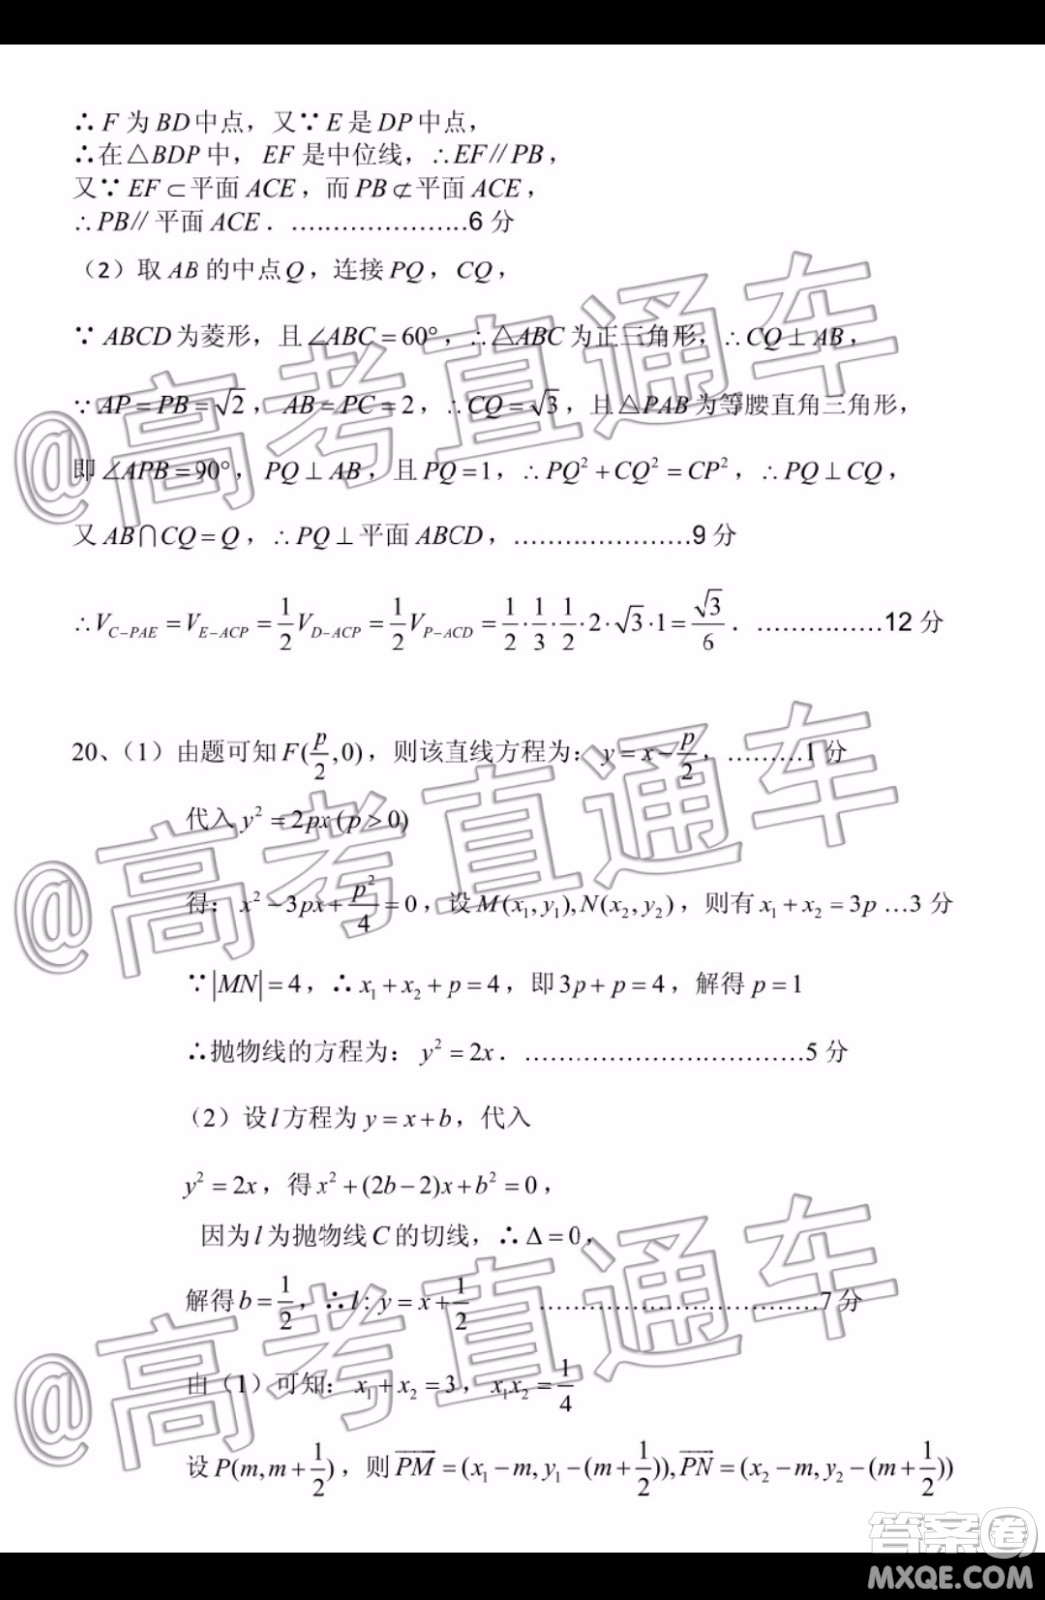 ∴F为BD中点，又∵E是DP中点，
∴在△BDP中，EF是中位线，∴EF∥PB，
又∵EF⊂平面ACE，而PB⊄平面ACE，
∴PB∥平面ACE．…………………6分
（2）取AB的中点Q，连接PQ，CQ，
∵ABCD为菱形，且∠ABC=60°，∴△ABC为正三角形，∴CQ⊥AB，
∵AP=PB=√2，AB=PC=2，∴CQ=√3，且△PAB为等腰直角三角形，
即∠APB=90°，PQ⊥AB，且PQ=1，∴PQ²+CQ²=CP²，∴PQ⊥CQ，
又AB⋂CQ=Q，∴PQ⊥平面ABCD，…………………9分
∴V_{C-PAE}=V_{E-ACP}=\frac{1}{2}V_{D-ACP}=\frac{1}{2}V_{P-ACD}=\frac{1}{2}·\frac{1}{3}·\frac{1}{2}·2·√3·1=\frac{√3}{6}．……………12分
20、（1）由题可知F(\frac{p}{2},0)，则该直线方程为：y=x-\frac{p}{2}，………1分
代入y²=2px(p>0)
得：x²-3px+\frac{p²}{4}=0，设M(x₁,y₁),N(x₂,y₂)，则有x₁+x₂=3p…3分
∵|MN|=4，∴x₁+x₂+p=4，即3p+p=4，解得p=1
∴抛物线的方程为：y²=2x．……………………………5分
（2）设l方程为y=x+b，代入
y²=2x，得x²+(2b-2)x+b²=0，
因为l为抛物线C的切线，∴Δ=0，
解得b=\frac{1}{2}，∴l：y=x+\frac{1}{2} ……………………………7分
由（1）可知：x₁+x₂=3，x₁x₂=\frac{1}{4}
设P(m,m+\frac{1}{2})，则\overline{PM}=(x₁-m,y₁-(m+\frac{1}{2})),\overline{PN}=(x₂-m,y₂-(m+\frac{1}{2}))
@高考直通车
@高考直通车
@高考直通车
答案卷
MXQE.COM